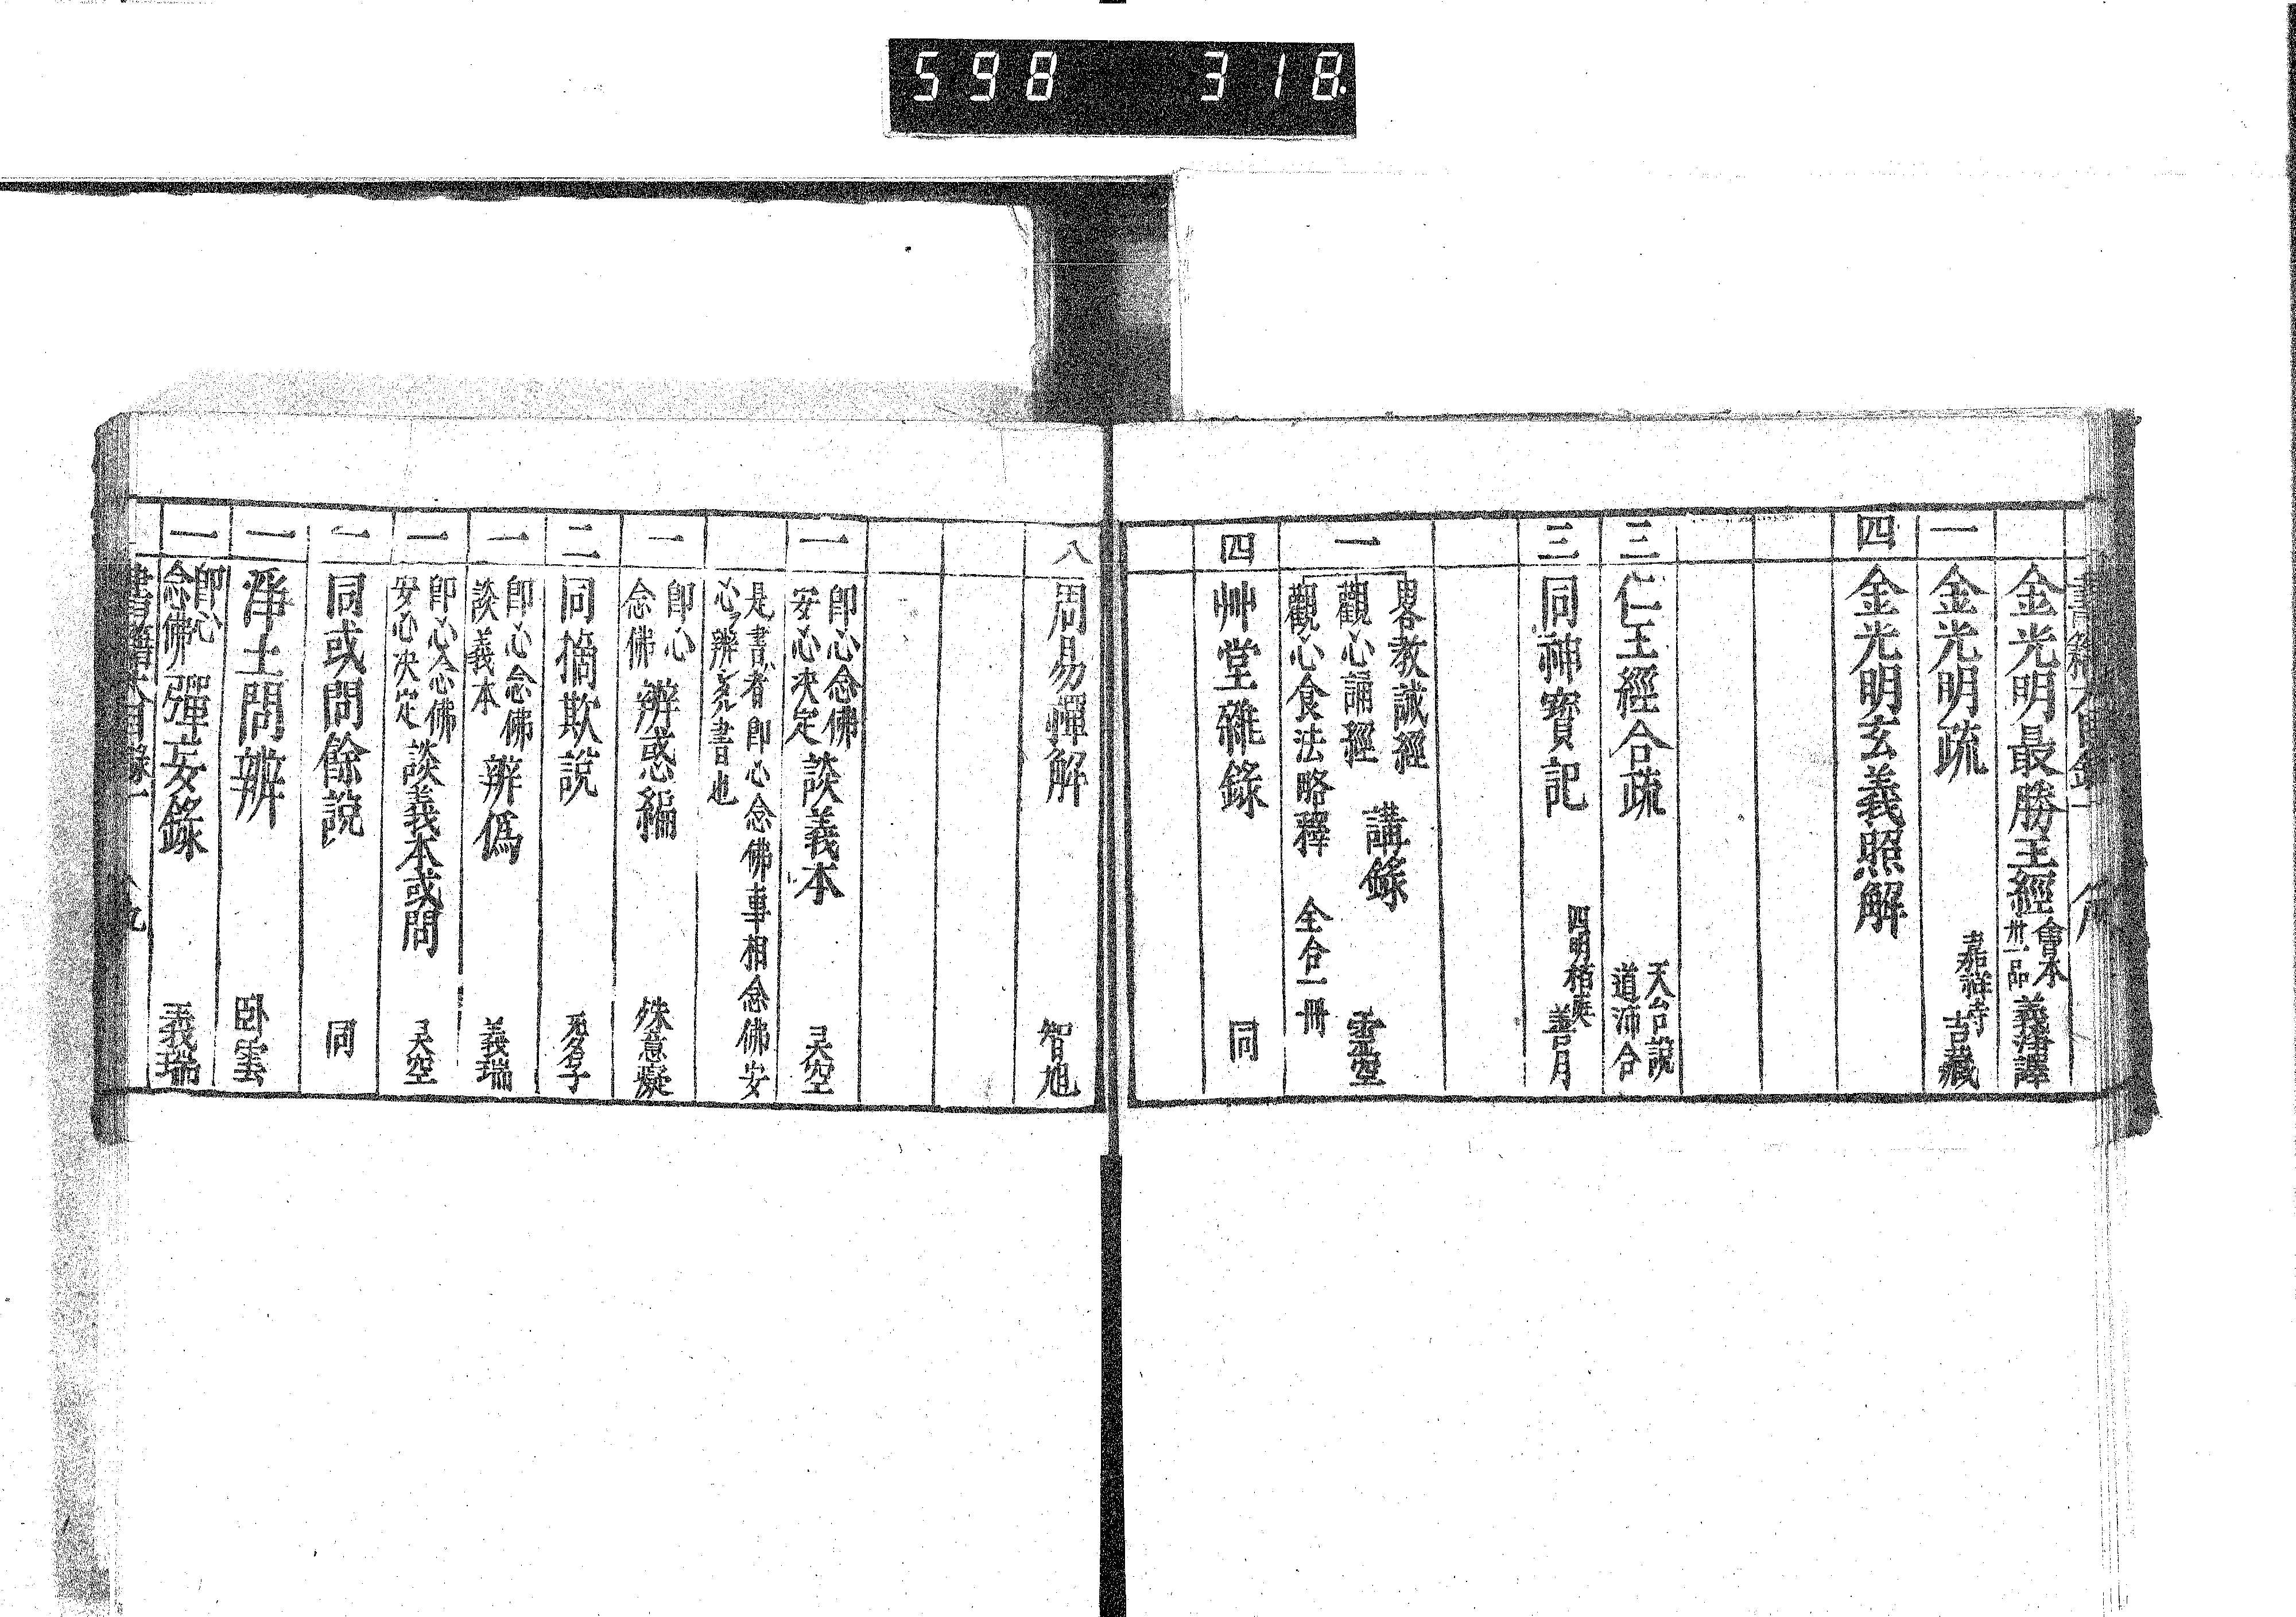 598 318
金光明最勝王經 會本 卅一品 義淨譯
一 金光明疏 嘉祥寺 吉藏
四 金光明玄義照解
三 仁王經合疏 天台說 道沛合
三 同神寳記 四明柏庭 善月
一 畧教誡經
觀心誦經 講錄 靈空
觀心食法略釋 全合一冊
四 艸堂雜錄 同
八 周易禪解 智旭
一 卽心念佛 安心決定 談義本 灵空
是書者卽心念佛事相念佛安
心ヲ辨シタル書也
一 卽心 念佛 辨惑編 殊意癡
二 同摘欺說 无名子
一 卽心念佛 談義本 辨偽 義瑞
一 卽心念佛 安心决定 談義本或問 灵空
一 同或問餘說 同
一 淨土問辨 卧雲
一 卽心 念佛 彈妄錄 義瑞
書籍大目錄一 九